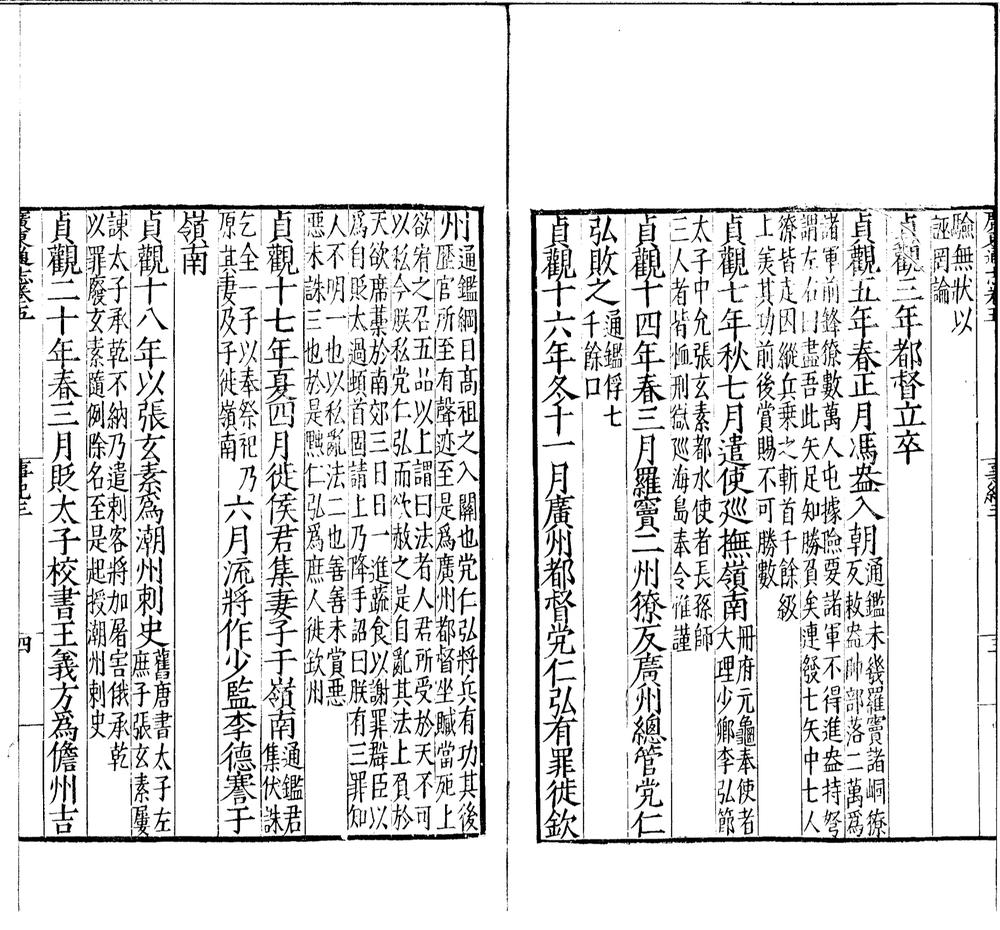 驗無狀以
誣罔論
貞觀三年都督立卒
貞觀五年春正月馮盎入朝通鑑未幾羅竇諸峒獠
反敕盎帥部落二萬爲
諸軍前鋒獠數萬人屯據險要諸軍不得進盎持弩
謂左右曰盡吾此矢足知勝負矣連發七矢中七人
獠皆走因縱兵乘之斬首千餘級
上美其功前後賞賜不可勝數
貞觀七年秋七月遣使巡撫嶺南冊府元龜奉使者
大理少卿李弘節
太子中允張玄素都水使者長孫師
三人者皆恤刑獄巡海島奉令惟謹
貞觀十四年春三月羅竇二州獠反廣州總管党仁
弘敗之通鑑俘七
千餘口
貞觀十六年冬十一月廣州都督党仁弘有罪徙欽
州通鑑綱目高祖之入關也党仁弘將兵有功其後
歷官所至有聲迹至是爲廣州都督坐贓當死上
欲宥之召五品以上謂曰法者人君所受於天不可
以私今朕私党仁弘而欲赦之是自亂其法上負於
天欲席藁於南郊三日日一進蔬食以謝罪羣臣以
爲自貶太過頓首固請上乃降手詔曰朕有三罪知
人不明一也以私亂法二也善善未賞惡
惡未誅三也於是黜仁弘爲庶人徙欽州
貞觀十七年夏四月徙侯君集妻子于嶺南通鑑君
集伏誅
乞全一子以奉祭祀乃
原其妻及子徙嶺南
六月流將作少監李德謇于
嶺南
貞觀十八年以張玄素爲潮州刺史舊唐書太子左
庶子張玄素屢
諫太子承乾不納乃遣刺客將加屠害俄承乾
以罪廢玄素隨例除名至是起授潮州刺史
貞觀二十年春三月貶太子校書王義方爲儋州吉
事紀三
四